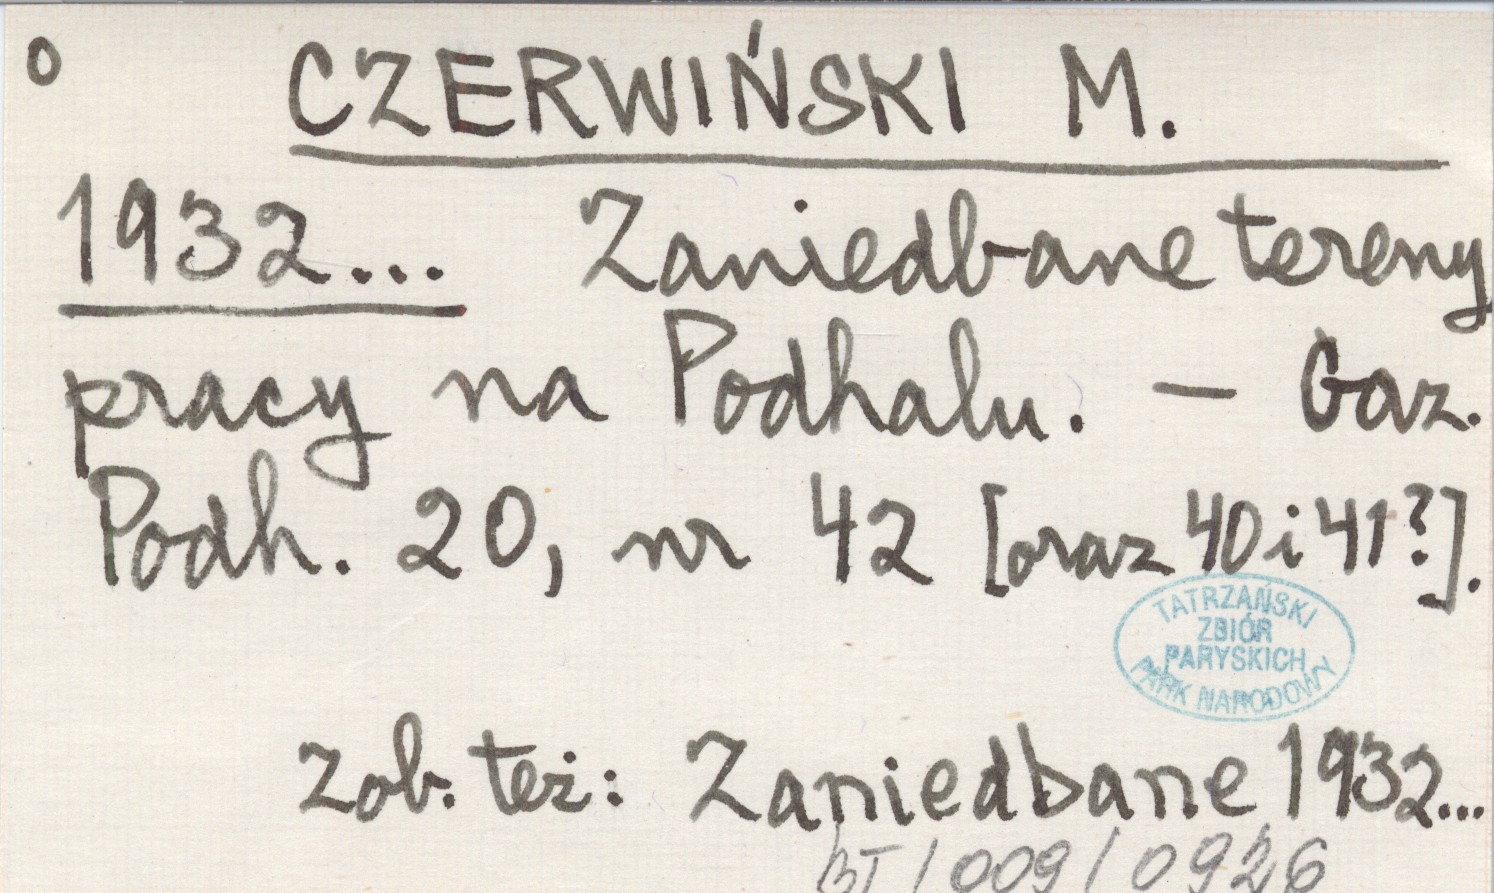 o CZERWIŃSKI M.
1932... Zaniedbane tereny
pracy na Podhalu. — Gaz.
Podh. 20, nr 42 [oraz 40 i 41?].
TATRZAŃSKI
ZBIÓR
PARYSKICH
PARK NARODOWY
Zob. też: Zaniedbane 1932...
BT/009/0926